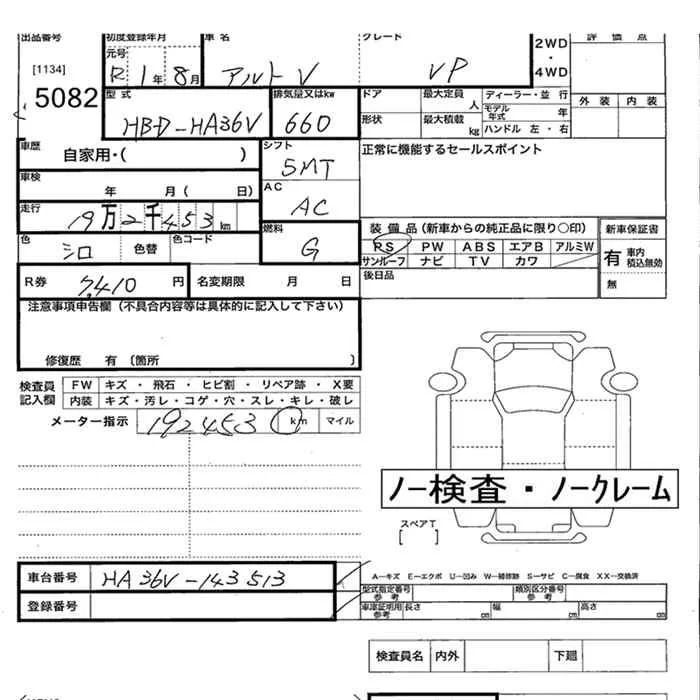 出品番号 初度登録年月 車名 グレード 2WD・4WD 評価点
[1134] 元号 R 1年 8月 アルトV VP
5082 型式 排気量又はkw ドア 最大定員 人 ディーラー・並行 外装 内装
HBD-HA36V 660 形状 最大積載 kg モデル年式 年 ハンドル 左・右
車歴 自家用・( ) シフト 5MT 正常に機能するセールスポイント
車検 年 月( 日) AC AC
走行 19万2千453km 燃料 G 装備品(新車からの純正品に限り○印) 新車保証書
色 シロ 色替 色コード PS PW ABS エアB アルミW 有 車内 積込無効
サンルーフ ナビ TV カワ 無
R券 7,410円 名変期限 月 日 後日品
注意事項申告欄(不具合内容等は具体的に記入して下さい)
修復歴 有〔箇所 〕
検査員記入欄 FW キズ・飛石・ヒビ割・リペア跡・X要
内装 キズ・汚レ・コゲ・穴・スレ・キレ・破レ
メーター指示 192453 km マイル
ノー検査・ノークレーム
スペアT
[ ]
車台番号 HA36V-143513 A-キズ E-エクボ U-凹み W-補修跡 S-サビ C-腐食 XX-交換済
登録番号 型式指定番号 参考 類別区分番号 参考
車庫証明用 参考 長さ cm 幅 cm 高さ cm
検査員名 内外 下廻